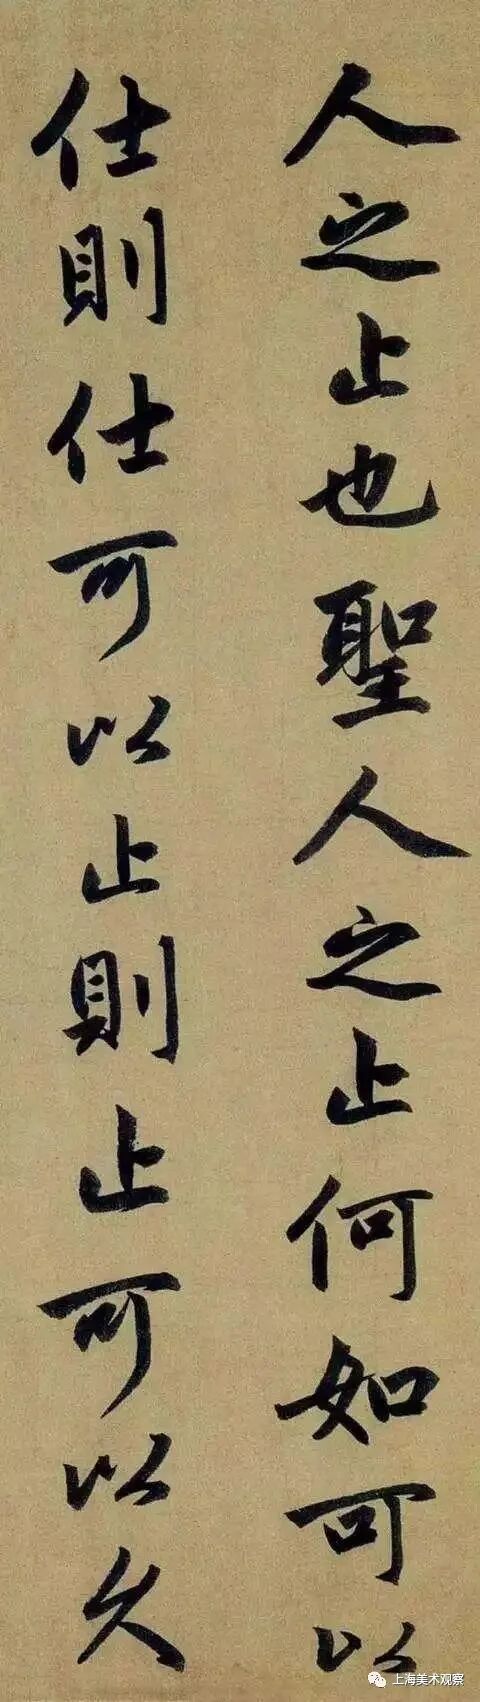 人之止也聖人之止何如可以
仕則仕可以止則止可以久
上海美术观察